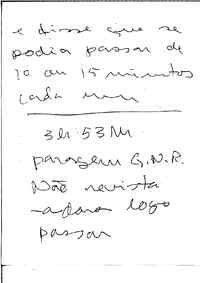 e disse que se
podia passar de
10 ou 15 minutos
cada um
3h 53M
paragem G.N.R.
Não revista
logo
passar